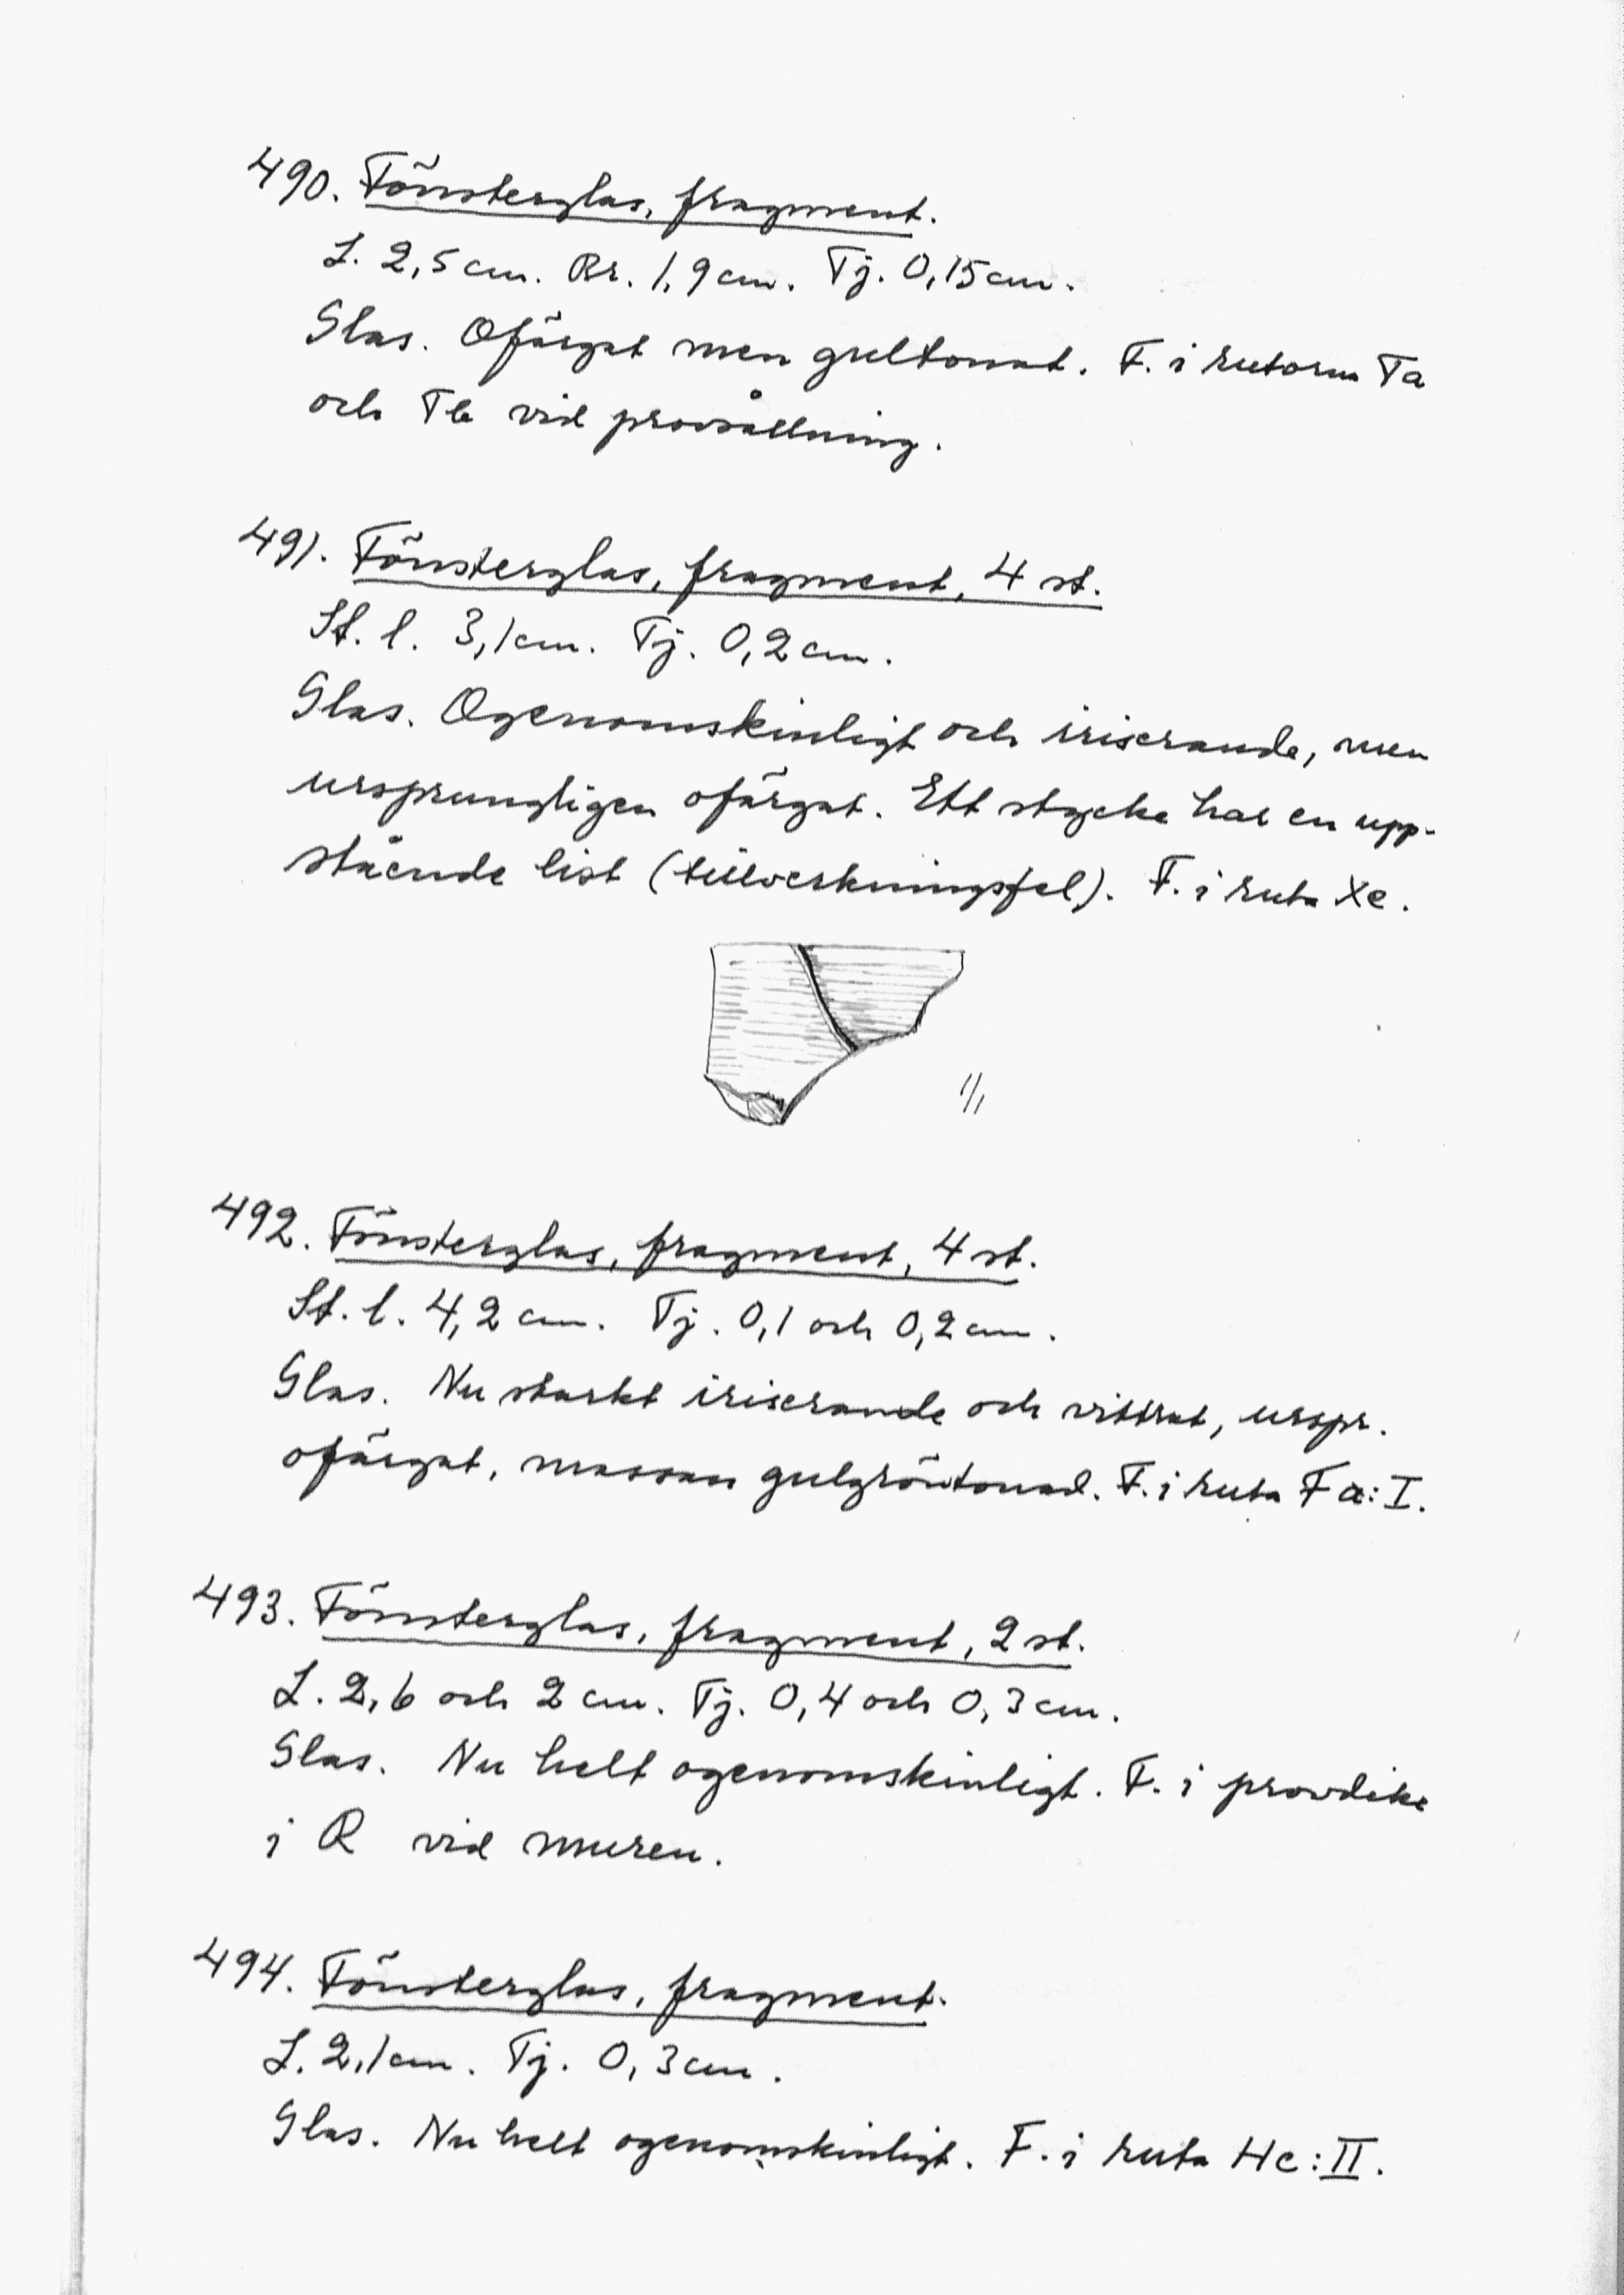 490. Fönsterglas, fragment.
L. 2,5 cm. Br. 1,9 cm. Tj. 0,15 cm.
Glas. Ofärgat men gultonat. F. i rutorna Ta
och Tb vid provsållning.
491. Fönsterglas, fragment, 4 st.
St. l. 3,1 cm. Tj. 0,2 cm.
Glas. Ogenomskinligt och iriserande, men
ursprungligen ofärgat. Ett stycke har en upp-
stående list (tillverkningsfel). F. i ruta Xc.
1/1
492. Fönsterglas, fragment, 4 st.
St. l. 4,2 cm. Tj. 0,1 och 0,2 cm.
Glas. Nu starkt iriserande och vittrat, urspr.
ofärgat, massan gulgröntonad. F. i ruta Fa: I.
493. Fönsterglas, fragment, 2 st.
L. 2,6 och 2 cm. Tj. 0,4 och 0,3 cm.
Glas. Nu helt ogenomskinligt. F. i provdike
i R vid muren.
494. Fönsterglas, fragment.
L. 2,1 cm. Tj. 0,3 cm.
Glas. Nu helt ogenomskinligt. F. i ruta Hc: II.